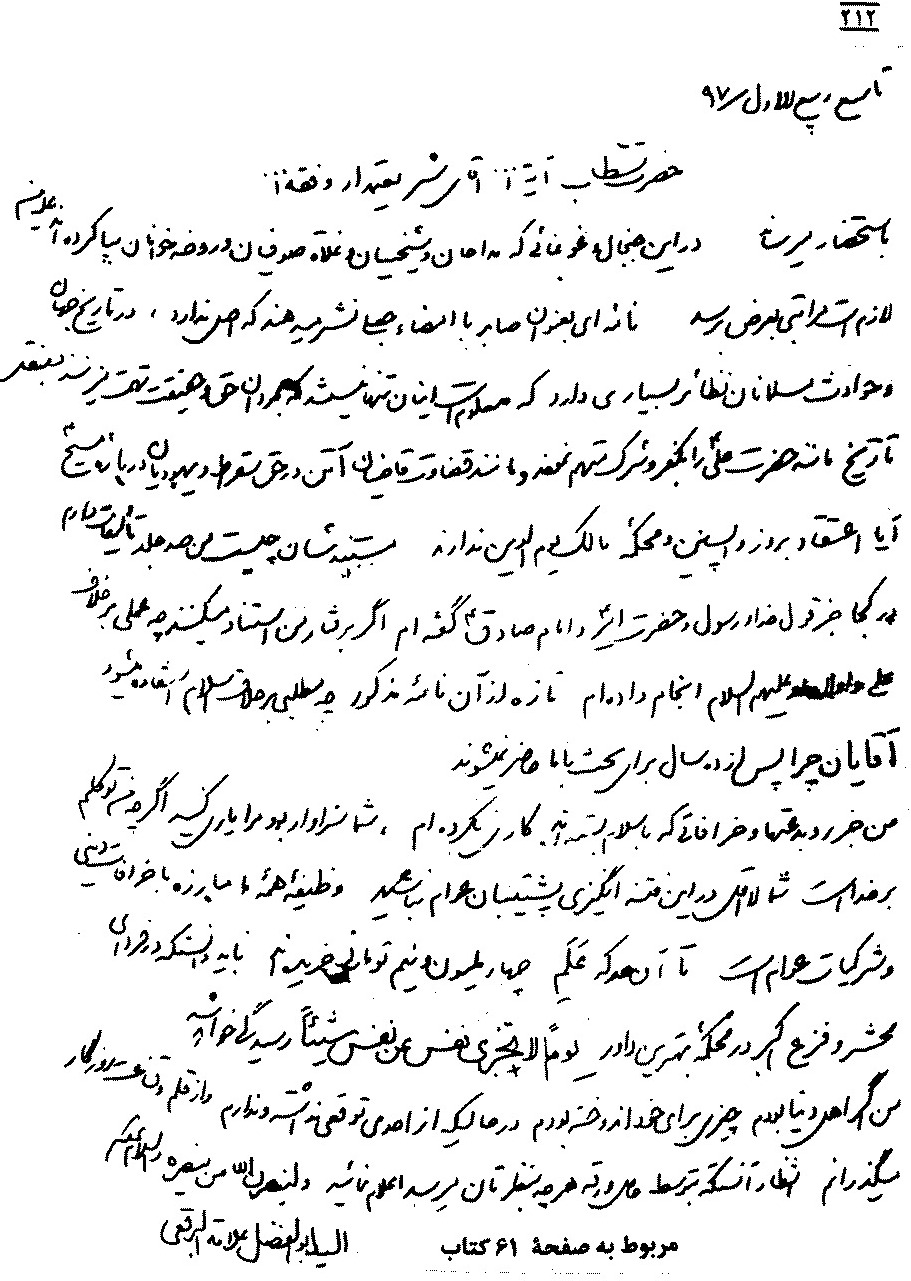 ۲۱۲
تاسع ربیع الاول ۹۷
حضرت مستطاب آیة ا... آقای شریعتمدار وفقه ا...
باستحضار میرساند در این جنجال و غوغائی که مداحان و شیخیان و غلاة صوفیان و روضه خوانان بپا کرده اند علیه من
لازم است مراتبی بعرض برسد نامه ای بعنوان صابر با امضاء جعلی نشر میدهند که اصلی ندارد ، در تاریخ جهان
و حوادث مسلمانان نظائر بسیاری دارد که معلوم است اینان تنها نیستند که بمردان حق و حقیقت تهمت میزنند بعقیده
تاریخ مانند حضرت علی را بکفر و شرک متهم نمودند و مانند قضاوت قاضیان آتن در حق سقراط و یهودیان درباره مسیح ع
آیا اعتقاد بروز واپسین و محکمۀ مالک یوم الدین ندارند مستندشان چیست من صد جلد تألیفات دارم
در کجا جز قول خدا و رسول و حضرت امیر و امام صادق ع گفته ام اگر برفتار من استناد میکنند چه عملی برخلاف
علی و اولاد علیهم السلام انجام داده ام تازه از آن نامۀ مذکور چه مطلبی برخلاف اسلام استفاده میشود
آقایان چرا پس از ده سال برای بحث با ما حاضر نمیشوند
من جز رد بدعتها و خرافاتی که باسلام بسته اند کاری نکرده ام ، شما سزاوار بود مرا یاری کنید اگر چه من توکلم
بر خداست شما لااقل در این فتنه انگیزی پشتیبان عوام نباشید وظیفۀ همۀ ما مبارزه با خرافات دینی
و شرکیات عوام است تا آن حد که عَلَم چهار میلیون و نیم تومانی خریده اند باید دانست که در فردای
محشر و فزع اکبر در محکمۀ بهترین داور یوماً لا تجزی نفس عن نفس شیئاً رسیدگی خواهد شد
من اگر اهل دنیا بودم چیزی برای خود اندوخته بودم در حالیکه از احدی توقعی نداشته و ندارم و از قلم و قناعت روزگار
میگذرانم انتظار آنستکه توسط حامل ورقه هر چه بنظرتان میرسد اعلام نمائید و لینصرن الله من ینصره والسلام علیکم
السید ابوالفضل علامة البرقعی
مربوط به صفحۀ ۶۱ کتاب